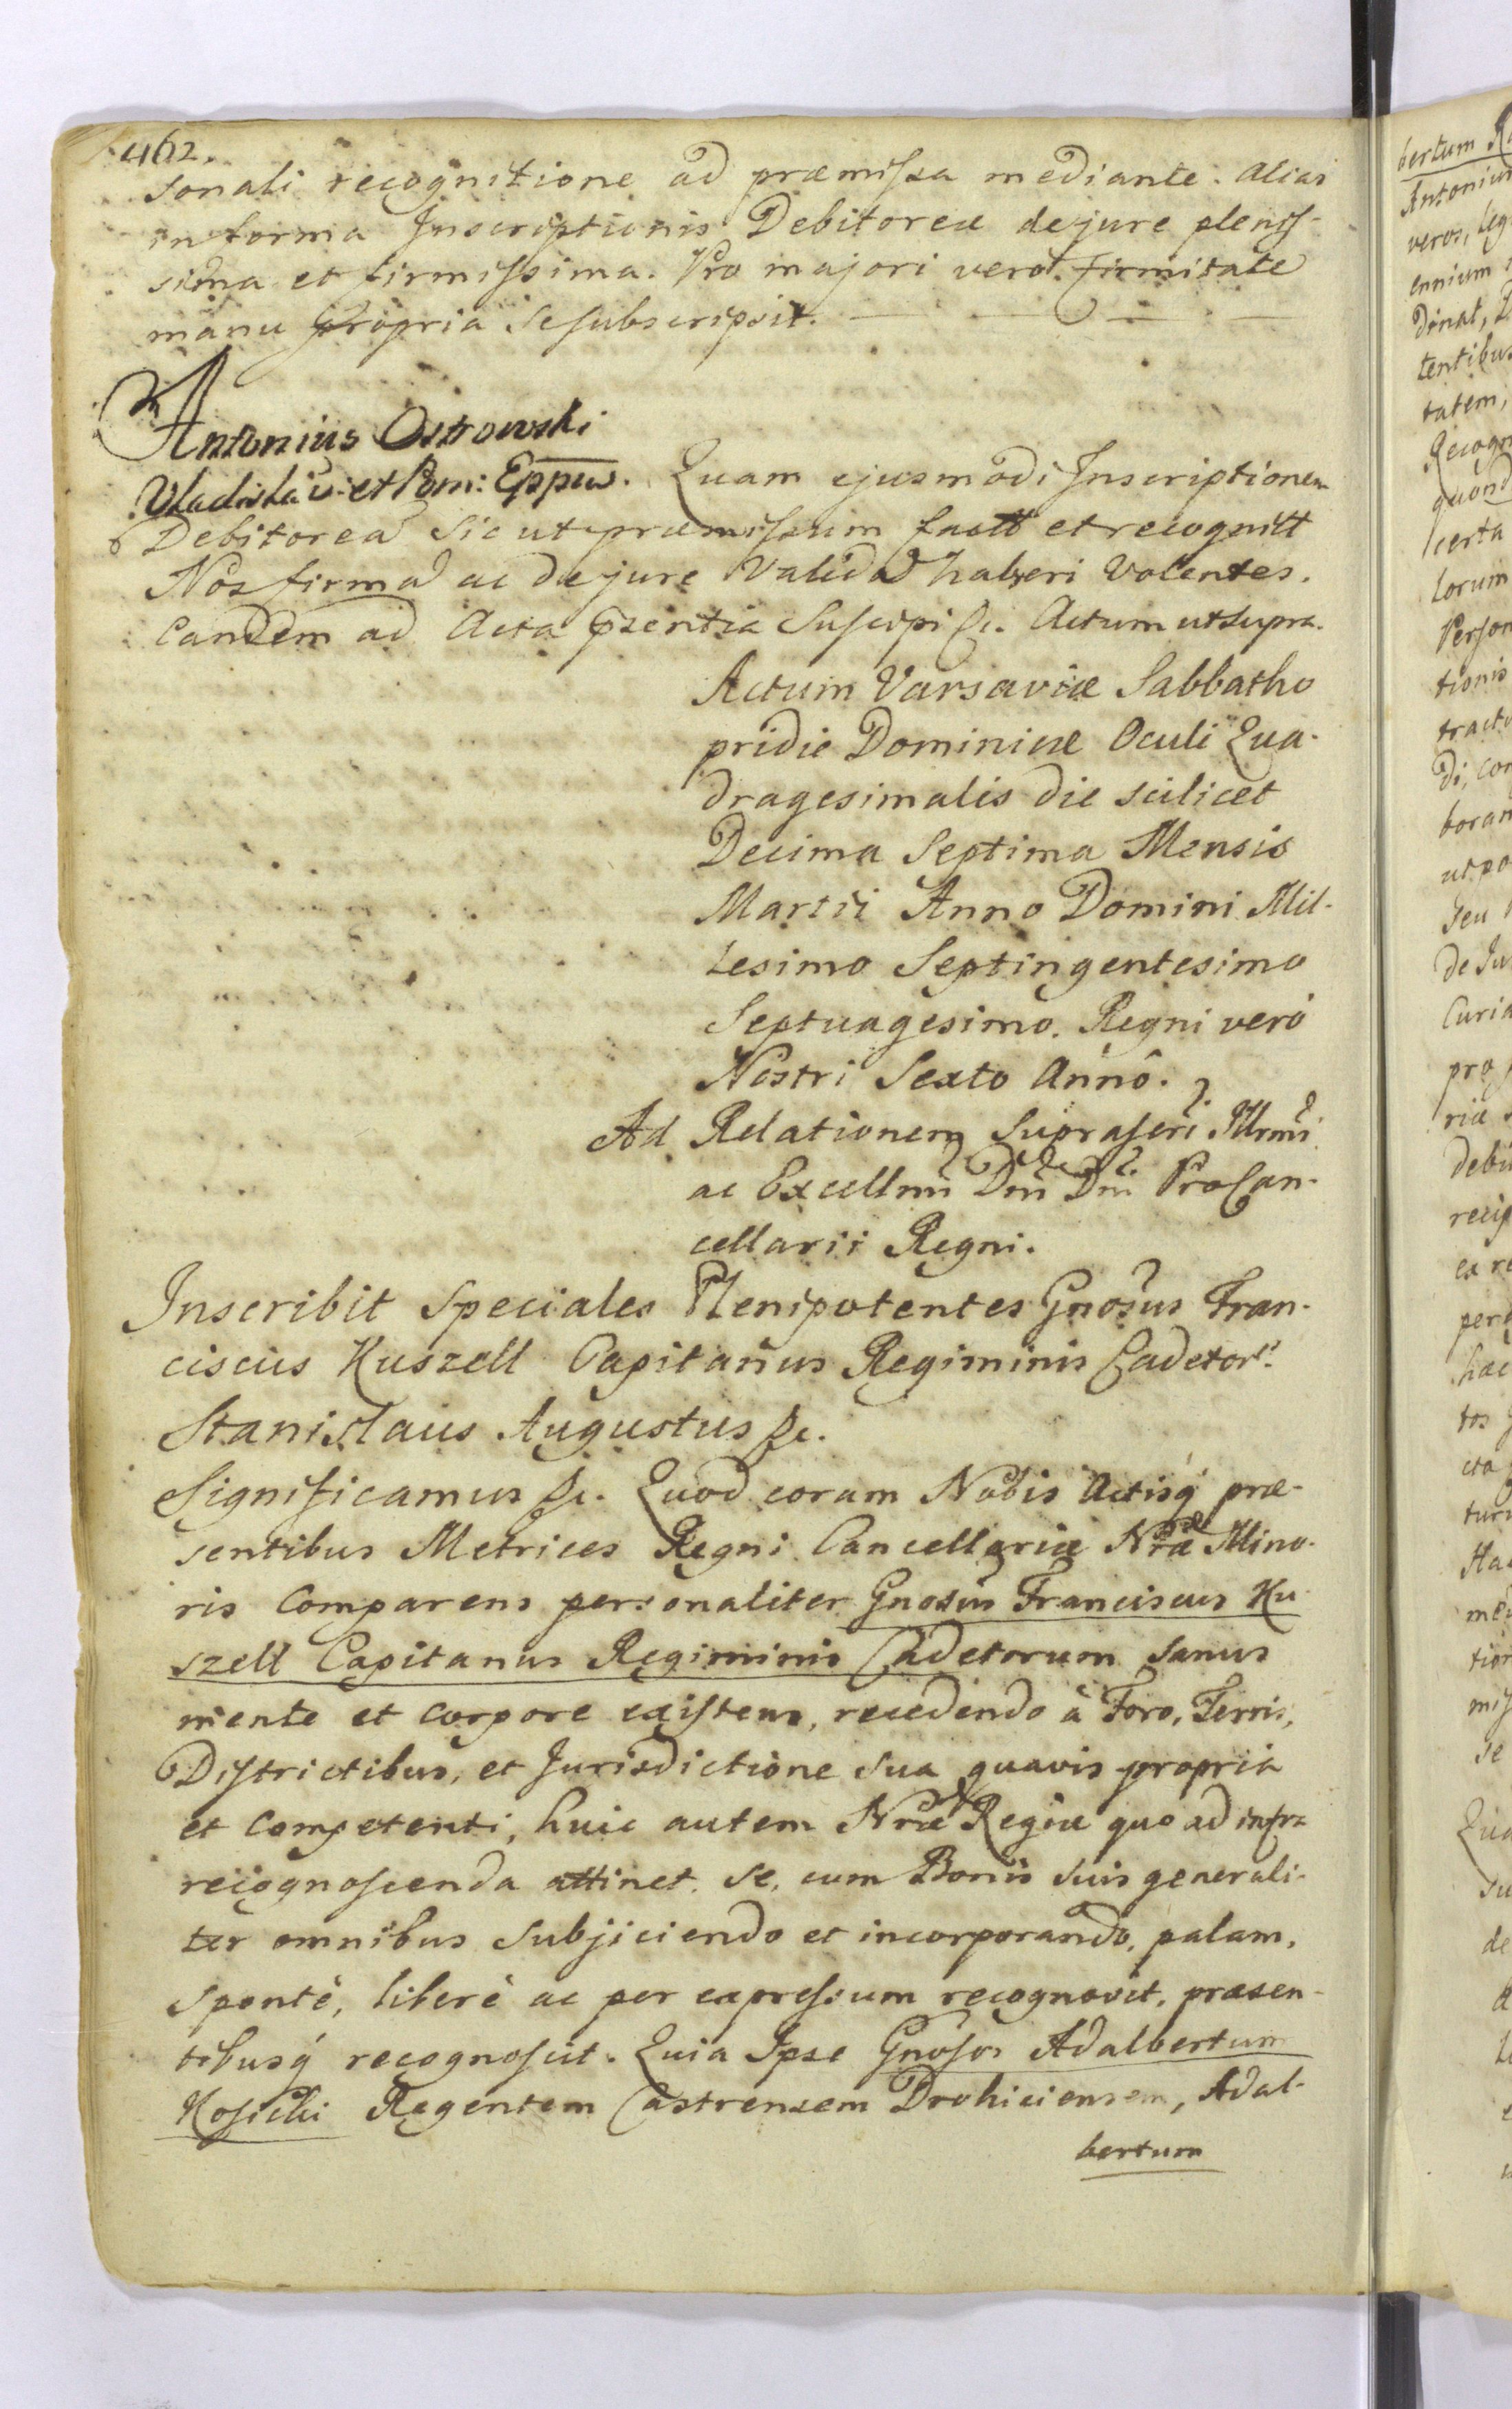 462.
sonali recognitione ad præmissa mediante. Alias
in forma Inscriptionis Debitoreæ de jure plenis-
sima et firmissima. Pro majori vero firmitate
manu propria se subscripsit.
Antonius Ostrowski
Vladislav: et Pom: Eppus. Quam ejusmodi Inscriptionem
Debitorea sic ut præmissum fact et recognitt
Nos firmã ac de jure Validã haberi Volentes.
Eandem ad Acta pzentia Suscipi &c. Actum ut supra.
Actum Varsaviæ Sabbatho
pridie Dominicæ Oculi Qua-
dragesimalis die scilicet
Decima Septima Mensis
Martii Anno Domini Mil-
lesimo Septingentesimo
Septuagesimo. Regni verò
Nostri Sexto Annô.
Ad Relationem suprascri Illrmi
ac Excellmi Dni Dni ProCan-
cellarii Regni.
Inscribit Speciales Plenipotentes Gnosus Fran-
ciscus Kuszell Capitanus Regiminis Cadetor:
Stanislaus Augustus &c.
Significamus &c. Quod coram Nobis Actisq́ præ-
sentibus Metrices Regni Cancellariæ Nræ Mino-
ris Comparens personaliter Gnosus Franciscus Ku-
szell Capitanus Regiminis Cadetorum sanus
mente et corpore existens, recedendo à Foro, Terris,
Districtibus, et Jurisdictione sua quavis propria
et Competenti, huic autem Nræ Regiæ quo ad infra
recognoscenda attinet. se, cum Bonis suis generali-
ter omnibus subjiciendo et incorporando, palam,
sponte, liberè ac per expressum recognovit, præsen-
tibusq́ recognoscit. Quia Ipse Gnosos Adalbertum
Kosicki Regentem Castrensem Drohiciensem, Adal-
bertum
bertum
Antonium
veros, leg
ennium
dinat,
tentibus
tatem,
Recogn
quond
certa
lorum
Person
tionis
tract
di, con
boran
utpo
seu
de Ju
Curia
pro
riæ
debi
recip
ex re
per
hac
tos
cta
tur
Ha
me
tion
mis
se
Qua
su
de